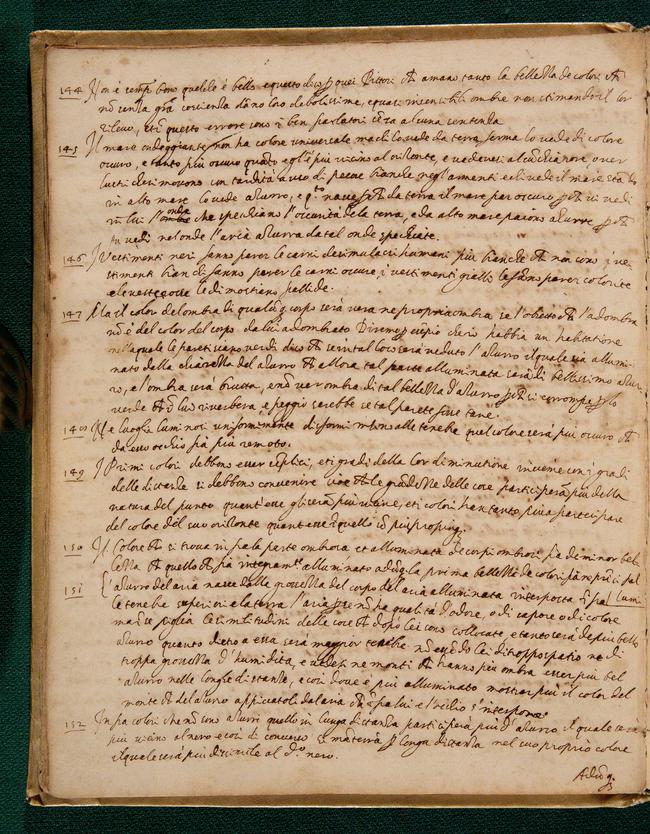 144 Non è sempre buono quello che è bello e questo dico p quei Pittori ch amano tanto la bellezza de colori ch
nò senza grã coscienza dãno loro debolissime, e quasi insensibili ombre non stimando il lor
rilevo, et in questo errore sono i ben parlatori sẽza alcuna sentenza
145 Il mare ondeggiante non ha colore universale, ma chi lo vede da terra ferma lo vede di colore
oscuro, e tanto più oscuro quãto egl'è più vicino al orizonte, e vedevasi alcũ chiarore over
lustri che si movono con tardità a uso di pecore bianche negl'armenti e chi vede il mare stãdo
in alto mare lo vede azurro, e qto nasce pch da terra il mare par oscuro pch tu vedi
in lui l'onde che specchiano l'oscurità de la terra, e da alto mare paiono azurre pch
tu vedi nel onde l'aria azurra da tal onde specchiate.
146 I Vestimenti neri fanno parer le carni de simulacri humani più bianche ch non sono i ve-
stimenti bianchi fanno parere le carni oscure, i vestimenti gialli le fãno parer colorite
e le veste rosse le dimostrano pallide.
147 Mai il color del ombra di qualũq corpo serà vera ne propria ombra se l'obietto ch l'adombra
nò è del color del corpo da lui adombrato Diremo p esẽpio che io habbia un habitatione
nella quale le pareti siano verdi dico ch se in tal loco serà veduto l'azurro il quale sia allumi-
nato della chiarezza del azurro ch allora tal parte alluminata sarà di bellissimo azur-
ro, e l'ombra serà brutta, e nò ver ombra di tal bellezza d'azurro pch si corrompe p lo
verde ch ĩ lui riverbera e peggio sarebbe se tal parete fusse tanè.
148 Ne luoghi luminosi uniformemente difformi insino alle tenebre quel colore serà più oscuro ch
da esso occhio fia più remoto.
149 I Primi colori debbono esser semplici, et i gradi della lor diminutione insieme con i gradi
delle distanze si debbono convenire cioè ch le grandezze delle cose participerã più della
natura del punto quant'esse gli serã più vicine, et i colori han tanto più a participare
del colore del suo orizonte quant'essi a quello sõ più propinqui.
150 Il Colore ch si trova in fra la parte ombrosa et alluminata de corpi ombrosi fia di minor bel-
lezza ch quello ch fia integramte alluminato adũq la prima bellezza de colori fia ne pricipal lumi
151 L'azurro del aria nasce dalla grossezza del corpo del aria alluminata interposta ĩfra
le tenebre superiori e la terra l'aria p se nõ ha qualità d'odore, o di sapore o di colore
ma ĩ se piglia le similitudini delle cose ch dopò lei sono collocate, e tanto sarà de più bello
azurro quanto dietro a essa serà maggior tenebre nõ essẽdo lei di troppo spatio ne di
troppa grossezza d'humidità, e vedesi ne monti ch hanno più ombra esser più bel
azurro nelle longhe distanze, e così dove è più alluminato mostrar più il color del
monte ch del azurro appiccatoli dal aria ch ĩfra lui e l'occhio s'interpone
152 Infra colori che nõ sono azurri quello in lunga distanza participerà più d'azurro il quale serà
più vicino al nero e così di converso si manterrà p longa distanza nel suo proprio colore
il quale serà più dissimile al do nero.
Adũq